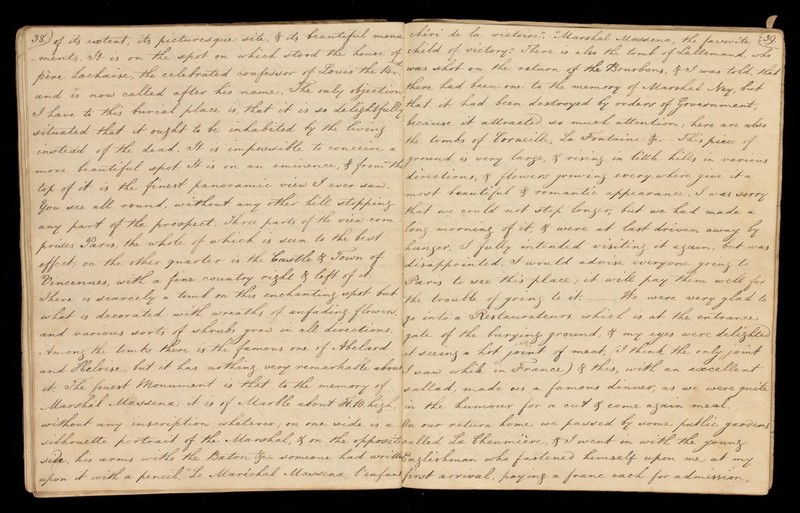 38.) of its extent, its picturesque site, & its beautiful monu
ments. It is on the spot on which stood the house of
père Lachaise, the celebrated confessor of Louis the 14th
and is now called after his name. The only objection
I have to this burial place is, that it is so delightfully
situated that it ought to be inhabited by the living
instead of the dead. It is impossible to conceive a
more beautiful spot. It is on an eminence, & from the
top of it is the finest panoramic view I ever saw.
You see all round, without any other hill stopping
any part of the prospect. Three parts of the view com
prises Paris, the whole of which is seen to the best
effect; on the other quarter is the Castle & Town of
Vincennes, with a fine country right & left of it.
There is scarcely a tomb on this enchanting spot but
what is decorated with wreaths of unfading flowers,
and various sorts of shrubs grow in all directions.
Among the tombs there is the famous one of Abelard
and Heloise, but it has nothing very remarkable about
it. The finest Monument is that to the memory of
Marshal Massena; it is of Marble about high,
without any inscription whatever; on one side is a
silhouette portrait of the Marshal, & on the opposite
side, his arms with the Baton &c. someone had written
upon it with a pencil, "Le Maréchal Massena, l'enfant
chéri de la victoire". "Marshal Massena, the favorite (39.
child of victory." There is also the tomb of Lallemand, who
was shot on the return of the Bourbons, & I was told, that
there had been one to the memory of Marshal Ney, but
that it had been destroyed by orders of Government,
because it attracted so much attention; here are also
the tombs of Corneille, La Fontaine &c. This piece of
ground is very large, & rising in little hills in various
directions, & flowers growing everywhere give it a
most beautiful & romantic appearance. I was sorry
that we could not stop longer, but we had made a
long morning of it, & were at last driven away by
hunger. I fully intended visiting it again, but was
disappointed. I would advise everyone going to
Paris to see this place; it will pay them well for
the trouble of going to it. We were very glad to
go into a Restaurateurs which is at the entrance
gate of the burying ground, & my eyes were delighted
at seeing a hot joint of meat, (I think the only joint
I saw while in France) & this, with an excellent
sallad, made us a famous dinner, as we were quite
in the humour for a cut & come again meal.
In our return home we passed by some public gardens
called La Chaumière, & I went in with the young
Englishman who fastened himself upon me at my
first arrival, paying a franc each for admission,